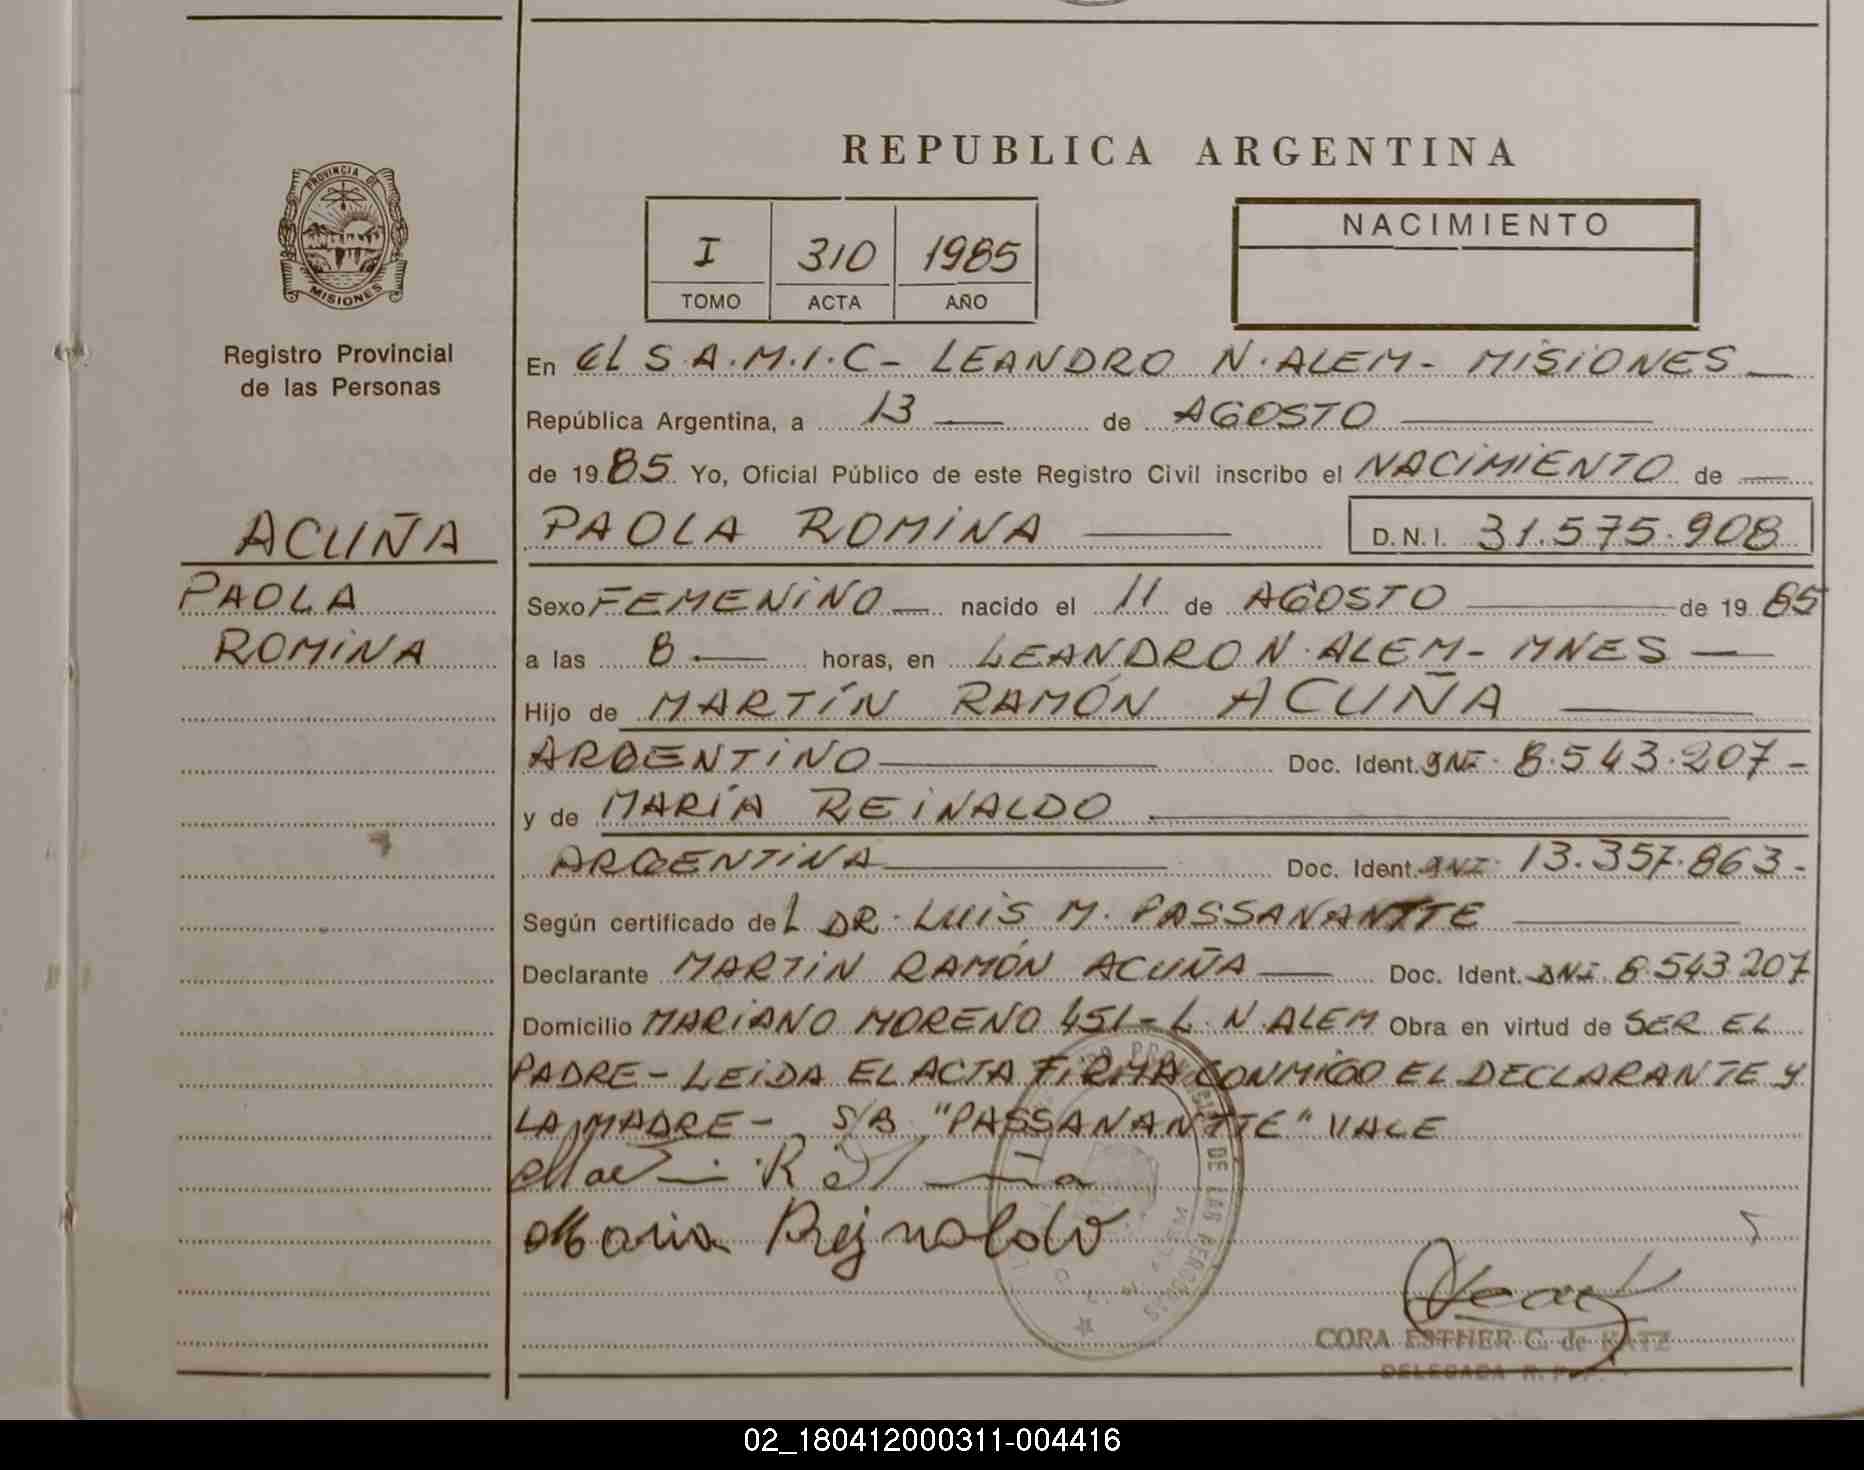 REPUBLICA ARGENTINA
PROVINCIA DE
MISIONES
Registro Provincial
de las Personas
I 310 1985
TOMO ACTA AÑO
NACIMIENTO
En EL S.A.M.I.C- LEANDRO N. ALEM- MISIONES
República Argentina, a 13 de AGOSTO
de 1985 Yo, Oficial Público de este Registro Civil inscribo el NACIMIENTO de
ACUÑA
PAOLA
ROMINA
PAOLA ROMINA D.N.I. 31.575.908
Sexo FEMENINO nacido el 11 de AGOSTO de 1985
a las 8 horas, en LEANDRO N. ALEM- MNES
Hijo de MARTÍN RAMÓN ACUÑA
ARGENTINO Doc. Ident. DNI. 8.543.207-
y de MARÍA REINALDO
ARGENTINA Doc. Ident. DNI. 13.357.863-
Según certificado del DR. LUIS M. PASSANANTTE
Declarante MARTIN RAMÓN ACUÑA Doc. Ident. DNI. 8.543.207
Domicilio MARIANO MORENO 451-L.N. ALEM Obra en virtud de SER EL
PADRE- LEIDA EL ACTA FIRMA CONMIGO EL DECLARANTE Y
LA MADRE- S/B "PASSANANTTE" VALE
Maria Rejnaldo
PROVINCIAL DE LAS PERSONAS
CORA ESTHER C. de KATZ
DELEGADA R.P.P.
02_180412000311-004416